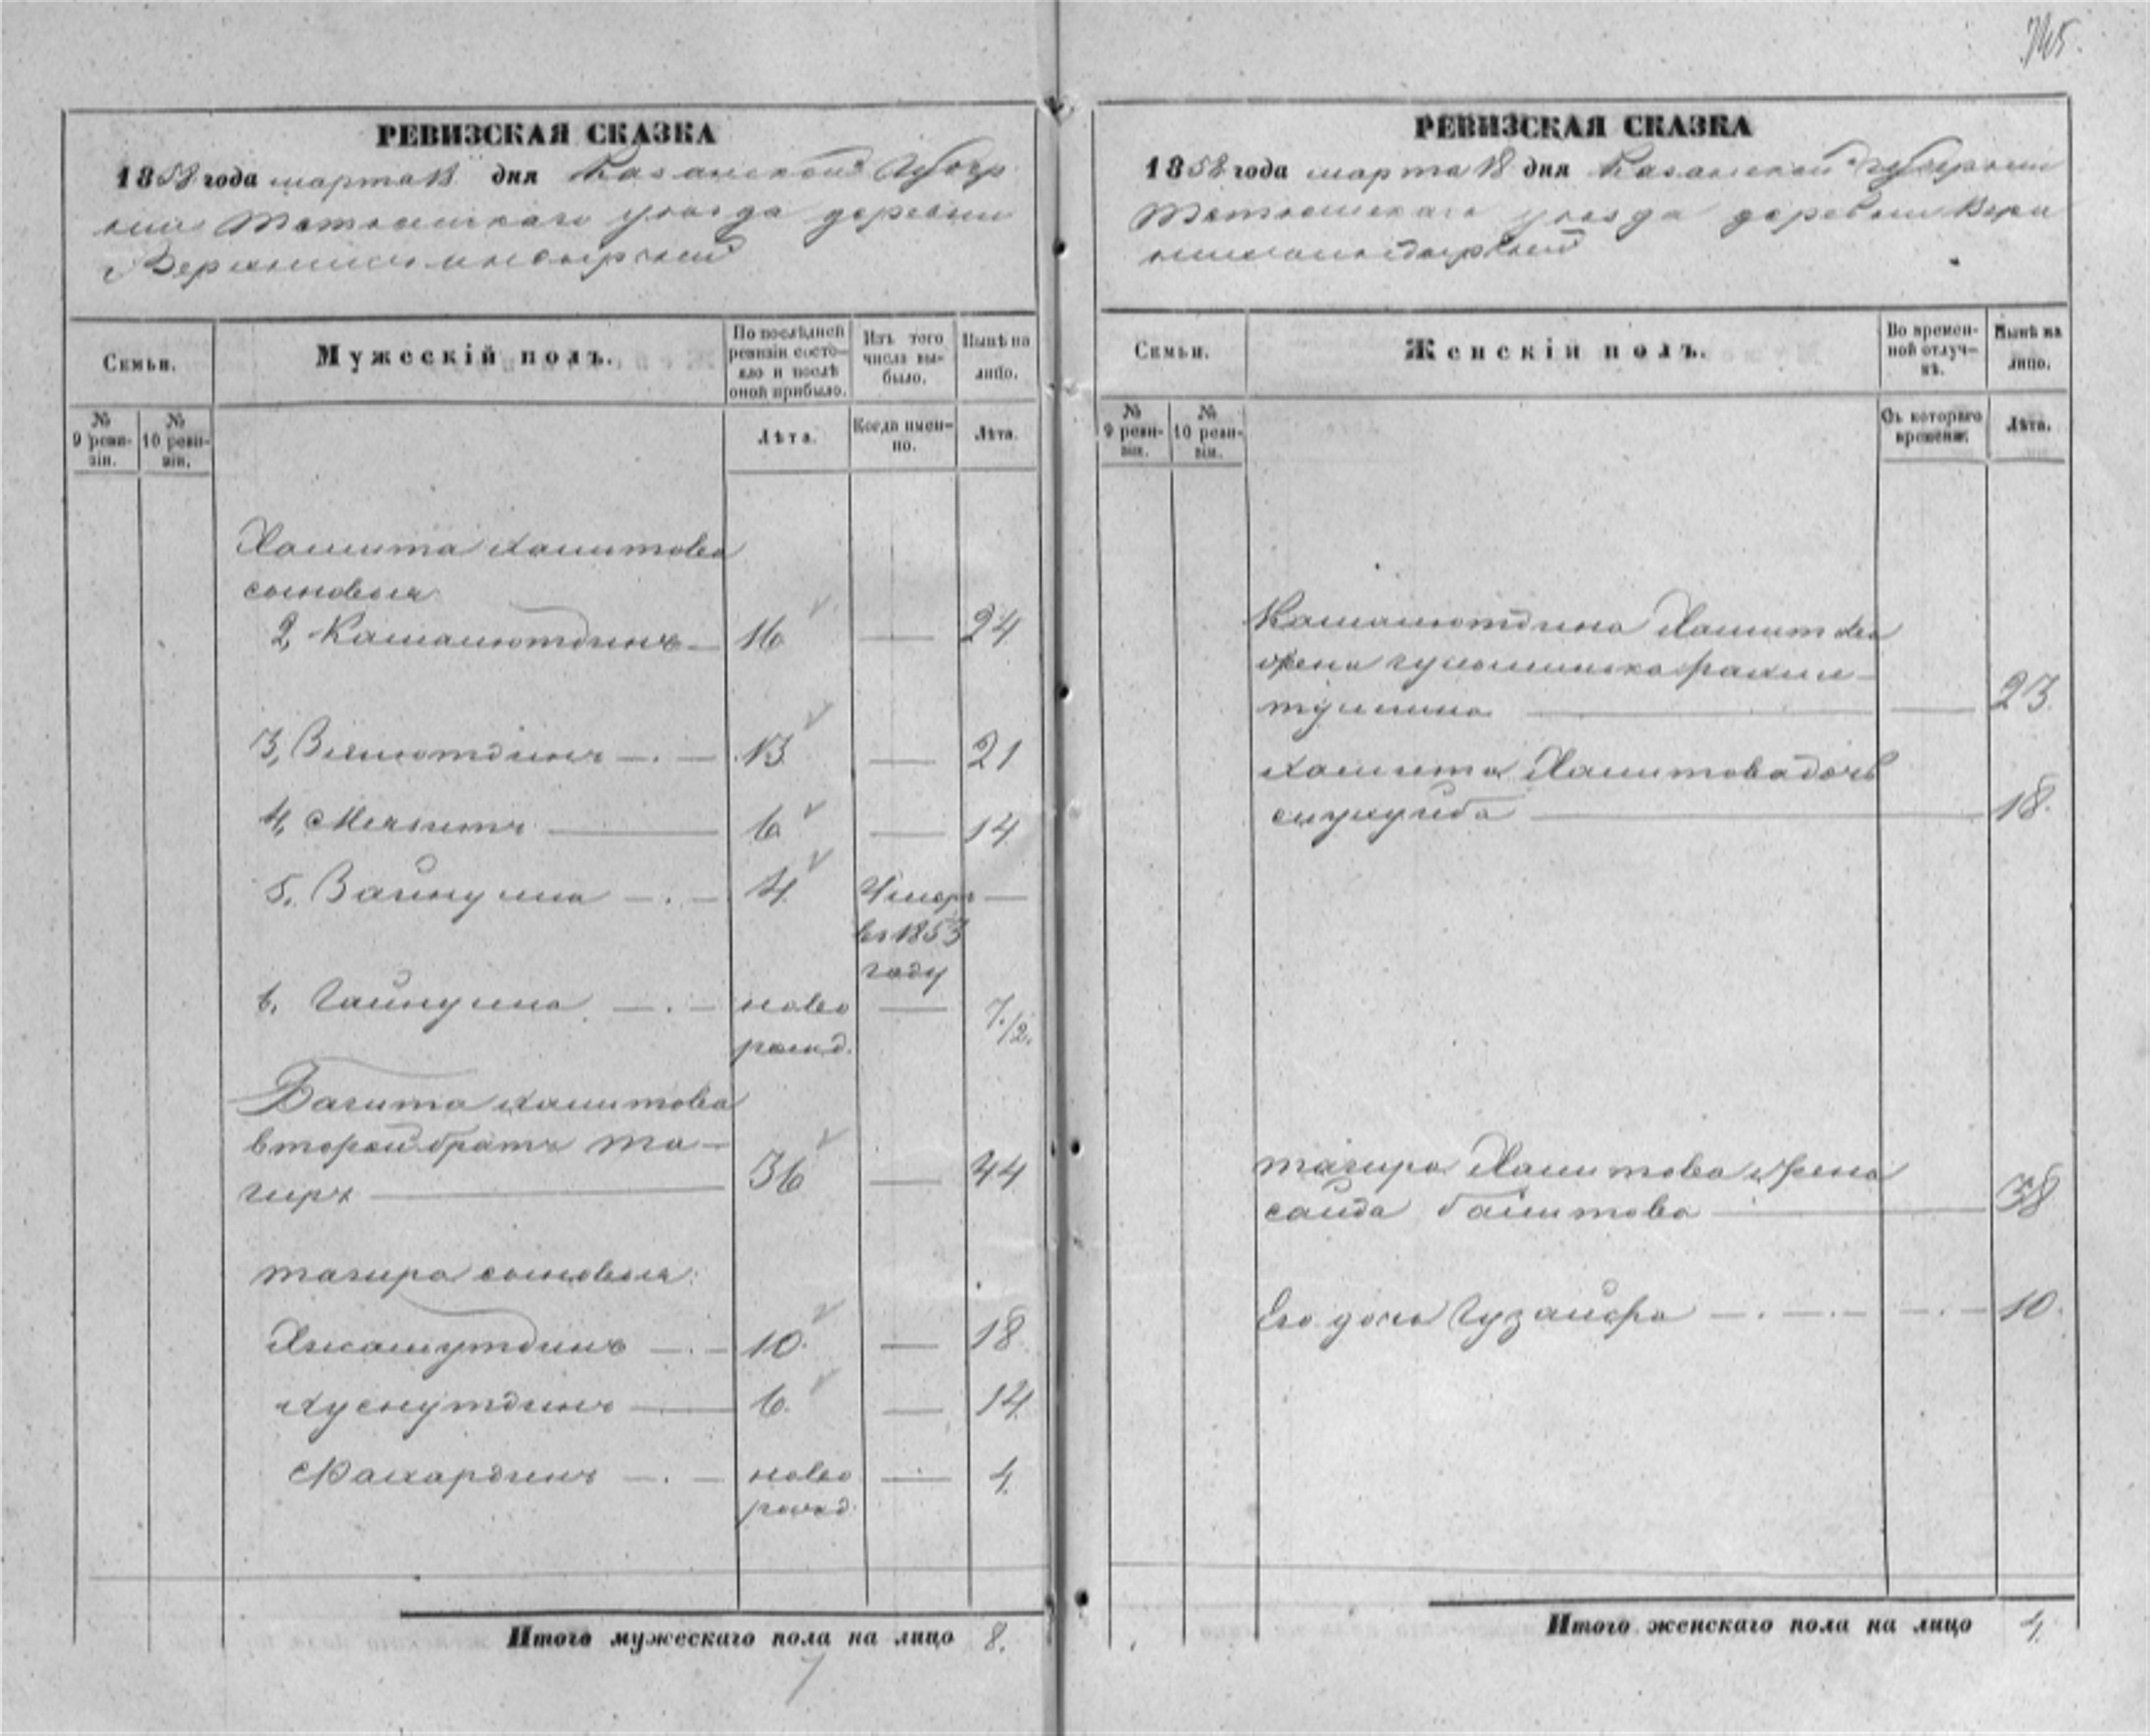 745.
РЕВИЗСКАЯ СКАЗКА
1858 года марта 18 дня Казанской Губер
нии Тетюшскаго уезда деревни
Семьи.
Мужескій полъ.
По послѣдней ревизіи состо-
яло и послѣ оной прибыло.
Изъ того числа вы-
было.
Нынѣ на лицо.
№ 9 реви-
зіи.
№ 10 реви-
зіи.
Лѣта.
Когда имен-
но.
Лѣта.
Хамита Хамитова
сыновья
2, Камалютдинъ — 16 — 24
3, — 13 — 21
4, — 6 — 14
5, Зайнулла — 4 Умеръ —
въ 1853
году
6, Гайнулла — ново — 7/2.
рожд.
Вагита Хамитова
второй братъ Та-
гиръ — 36 — 44
тагира сыновья:
— 10 — 18
Хуснутдинъ — 6 — 14
Фахардинъ — ново — 4
рожд.
Итого мужескаго пола на лицо 8.
7
РЕВИЗСКАЯ СКАЗКА
1858 года марта 18 дня Казанской губернии
Тетюшскаго уезда деревни Верх
Семьи.
Женскій полъ.
Во времен-
ной отлуч-
кѣ.
Нынѣ на лицо.
№ 9 реви-
зіи.
№ 10 реви-
зіи.
Съ котораго времени.
Лѣта.
Камалютдина Хамитова
жена
— 23.
Хамита Хамитова дочь
— 18.
тагира Хамитова жена
саида — 38
Его дочь Гузаифа — 10.
Итого женскаго пола на лицо 4.